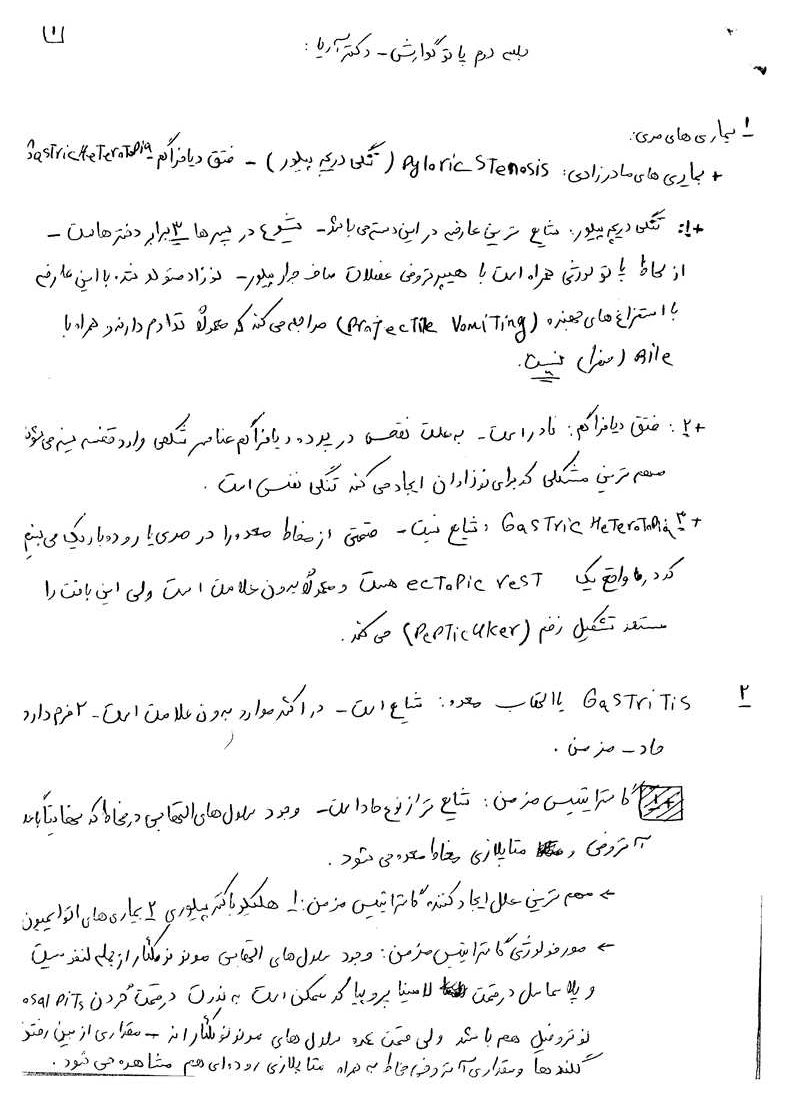 ۱
جلسه دوم پاتو گوارش - دکتر آریا:
۱ بیماری های مری:
+ بیماری های مادرزادی: Pyloric Stenosis (تنگی دریچه پیلور) - فتق دیافراگم - Gastric Heterotopia
+۱: تنگی دریچه پیلور: شایع ترین عارضه در این دسته می باشد - شیوع در پسرها ۳ برابر دخترهاست -
از لحاظ پاتولوژی همراه است با هیپرتروفی عضلات صاف جدار پیلور - نوزاد متولد شده با این عارضه
با استفراغ های جهنده (Projectile Vomiting) مراجعه می کند که معمولاً تداوم دارند و همراه با
Bile (صفرا) نیست.
+۲: فتق دیافراگم: نادر است - به علت نقص در پرده دیافراگم عناصر شکمی وارد قفسه سینه می شوند
مهم ترین مشکلی که برای نوزادان ایجاد می کند تنگی نفس است.
+۳ Gastric Heterotopia: شایع نیست - قسمتی از مخاط معده را در مری یا روده باریک می بینیم
که در واقع یک ectopic rest هست و معمولاً بدون علامت است ولی این بافت را
مستعد تشکیل زخم (Peptic ulcer) می کند.
۲ Gastritis یا التهاب معده: شایع است - در اکثر موارد بدون علامت است - ۲ فرم دارد
حاد - مزمن.
گاستریتیس مزمن: شایع تر از نوع حاد است - وجود سلول های التهابی در مخاط که نهایتاً باعث
آتروفی و متاپلازی مخاط معده می شود.
← مهم ترین علل ایجاد کننده گاستریتیس مزمن: ۱ هلیکوباکتر پیلوری ۲ بیماری های اتوایمیون
← مورفولوژی گاستریتیس مزمن: وجود سلول های التهابی مونونوکلئار از جمله لنفوسیت
و پلاسماسل در قسمت لامینا پروپیا که ممکن است به ندرت در قسمت گردن Pits
نوتروفیل هم باشد ولی قسمت عمده سلول های مونونوکلئار اند - مقداری از بین رفتن
گلندها و مقداری آتروفی مخاط به همراه متاپلازی روده ای هم مشاهده می شود.